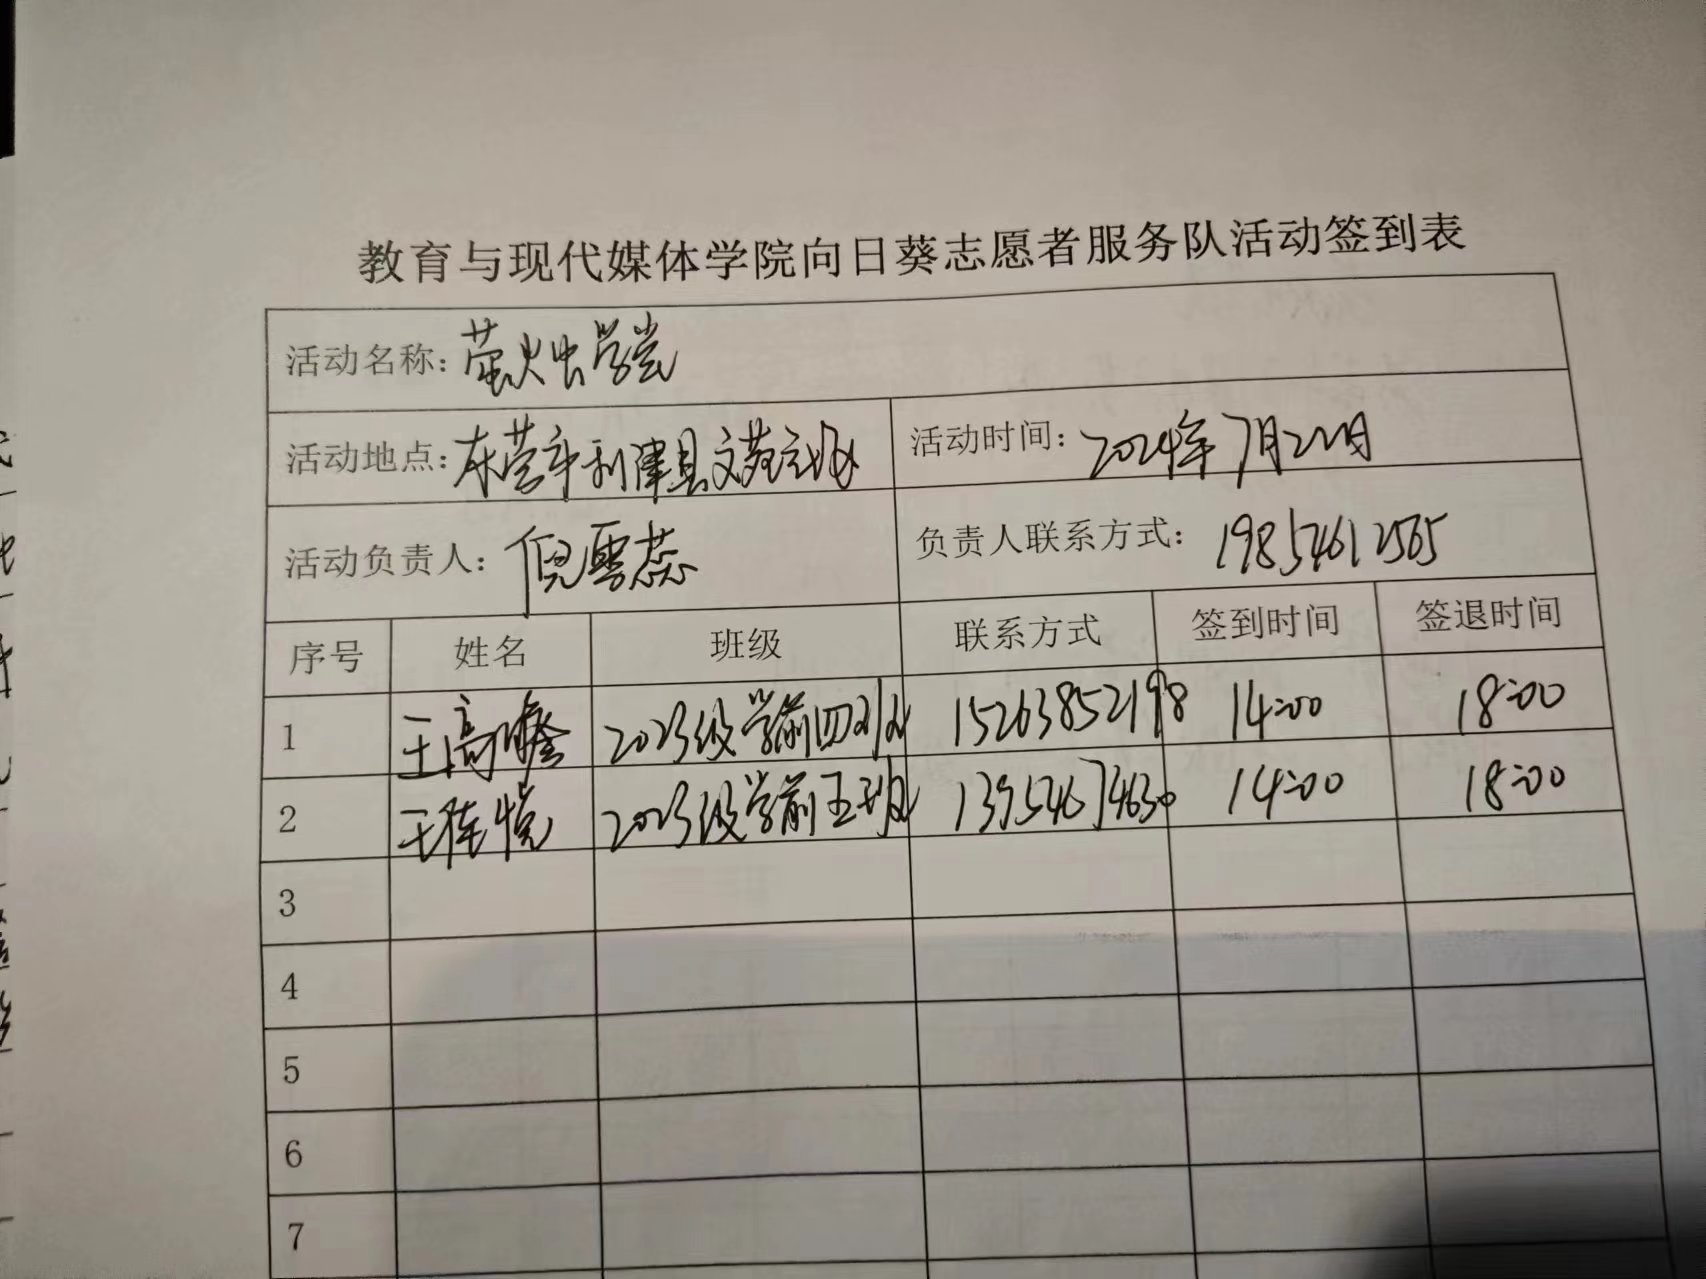 教育与现代媒体学院向日葵志愿者服务队活动签到表
活动名称：萤火虫学堂
活动地点：东营市利津县文苑 活动时间：2024年7月22日
活动负责人：倪雪蕊 负责人联系方式：19854612565
序号 姓名 班级 联系方式 签到时间 签退时间
1 王高 2023级学前四班 15263852198 14:00 18:00
2 王 悦 2023级学前五班 13954674630 14:00 18:00
3
4
5
6
7